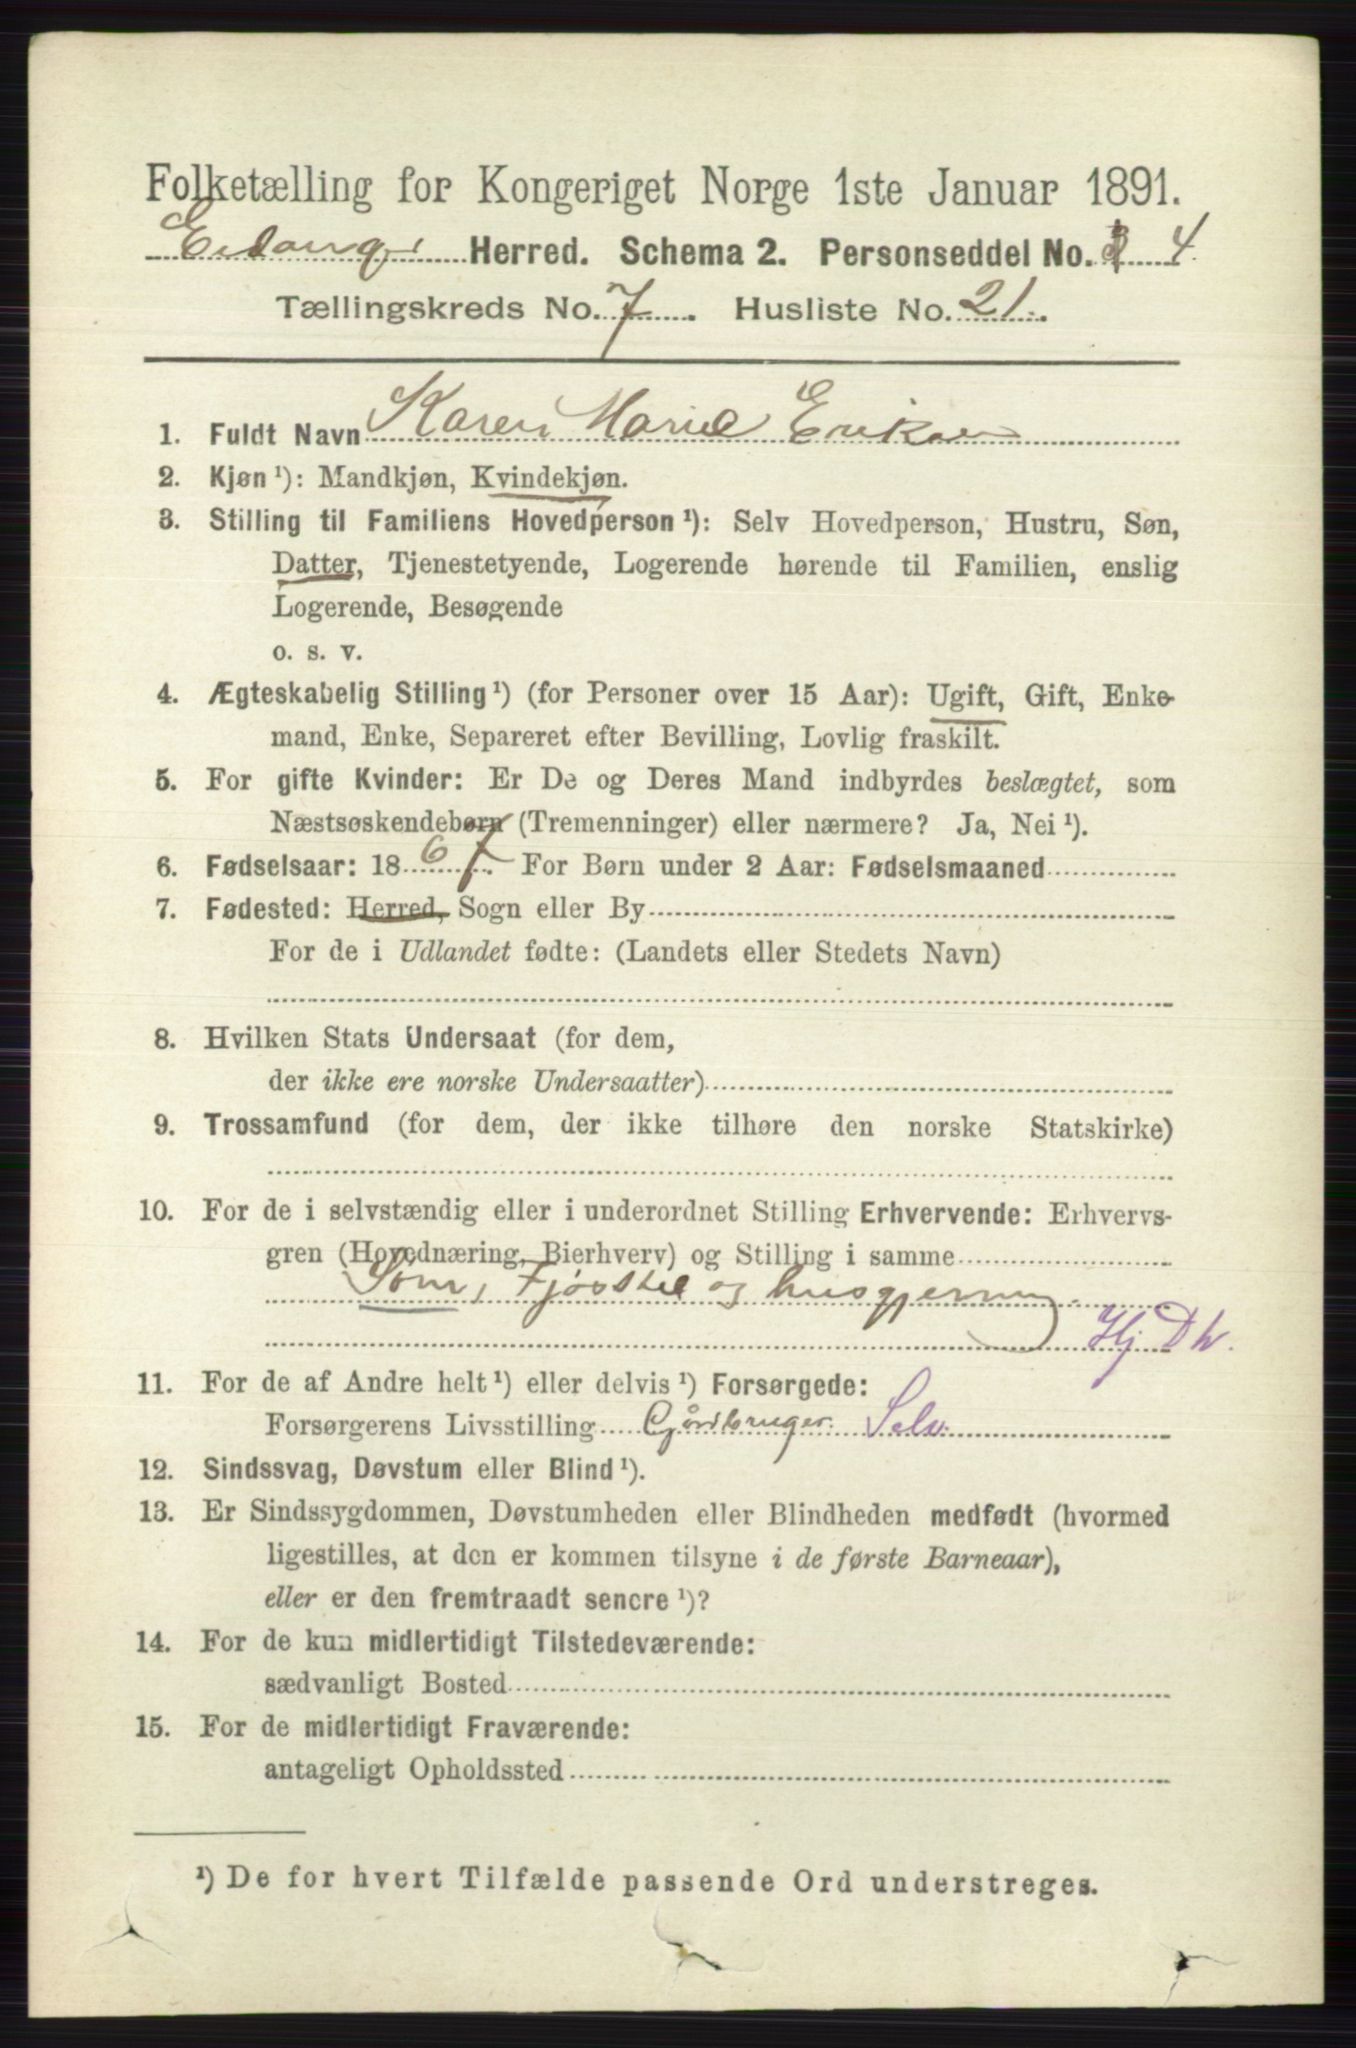 Folketælling for Kongeriget Norge 1ste Januar 1891.
Eidanger Herred. Schema 2. Personseddel No. 4
Tællingskreds No. 7. Husliste No. 21.
1. Fuldt Navn Karen Marie Eriksen
2. Kjøn¹): Mandkjøn, Kvindekjøn.
3. Stilling til Familiens Hovedperson¹): Selv Hovedperson, Hustru, Søn,
Datter, Tjenestetyende, Logerende hørende til Familien, enslig
Logerende, Besøgende
o. s. v.
4. Ægteskabelig Stilling¹) (for Personer over 15 Aar): Ugift, Gift, Enke-
mand, Enke, Separeret efter Bevilling, Lovlig fraskilt.
5. For gifte Kvinder: Er De og Deres Mand indbyrdes beslægtet, som
Næstsøskendebørn (Tremenninger) eller nærmere? Ja, Nei¹).
6. Fødselsaar: 1867. For Børn under 2 Aar: Fødselsmaaned
7. Fødested: Herred, Sogn eller By
For de i Udlandet fødte: (Landets eller Stedets Navn)
8. Hvilken Stats Undersaat (for dem,
der ikke ere norske Undersaatter)
9. Trossamfund (for dem, der ikke tilhøre den norske Statskirke)
10. For de i selvstændig eller i underordnet Stilling Erhvervende: Erhvervs-
gren (Hovednæring, Bierhverv) og Stilling i samme
Søm, Fjøsstel og husgjerning.
Hj Dh.
11. For de af Andre helt¹) eller delvis¹) Forsørgede:
Forsørgerens Livsstilling Gårdbruger. Selv.
12. Sindssvag, Døvstum eller Blind¹).
13. Er Sindssygdommen, Døvstumheden eller Blindheden medfødt (hvormed
ligestilles, at den er kommen tilsyne i de første Barneaar),
eller er den fremtraadt senere¹)?
14. For de kun midlertidigt Tilstedeværende:
sædvanligt Bosted
15. For de midlertidigt Fraværende:
antageligt Opholdssted
¹) De for hvert Tilfælde passende Ord understreges.